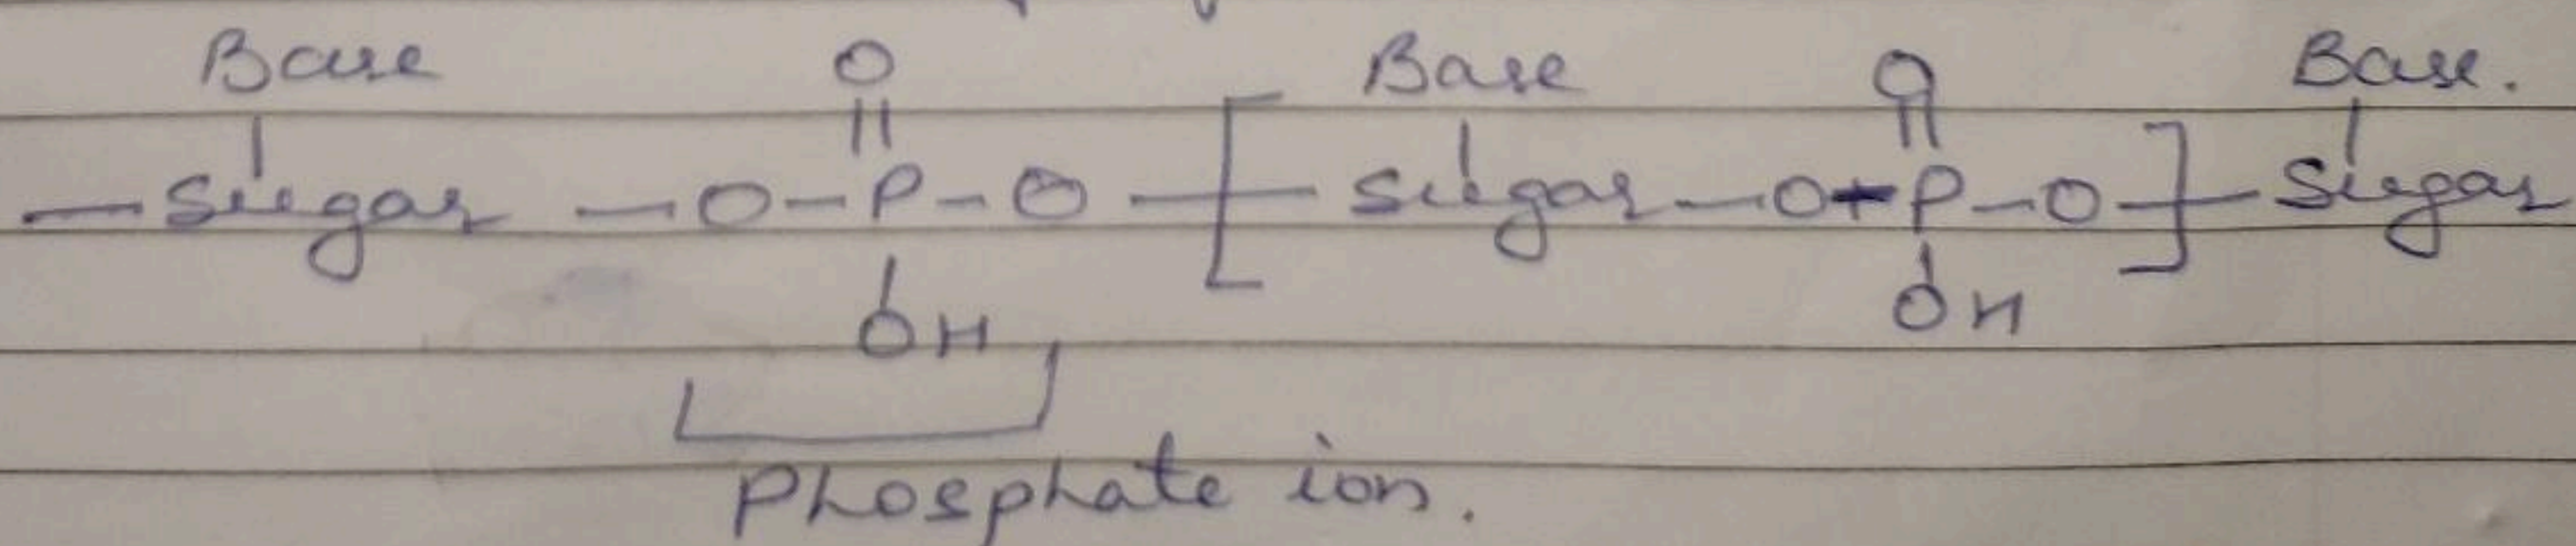 Base O Base O Base.
|| ||
— Sugar — O – P – O — [ — Sugar — O – P – O ] — Sugar
OH OH
Phosphate ion.